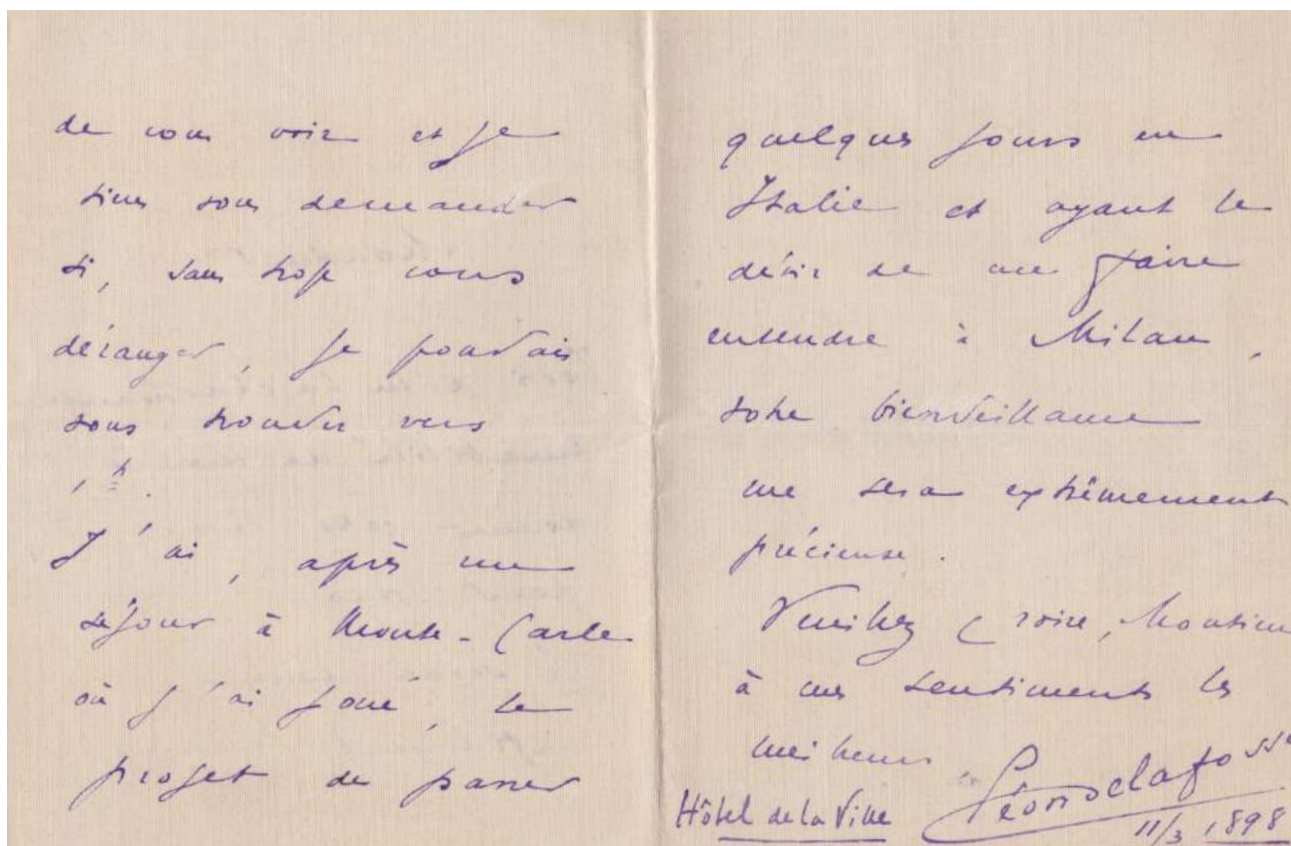 de vous voir et je
viens vous demander
si, sans trop vous
déranger, je pourrais
vous trouver vers
1h.
J'ai, après un
séjour à Monte-Carlo
où j'ai joué, le
projet de passer
quelques jours en
Italie et ayant le
désir de me faire
entendre à Milan,
votre bienveillance
me sera extrêmement
précieuse.
Veuillez croire, Monsieur
à mes sentiments les
meilleurs
Léon Delafosse
Hôtel de la Ville
11/3 1898